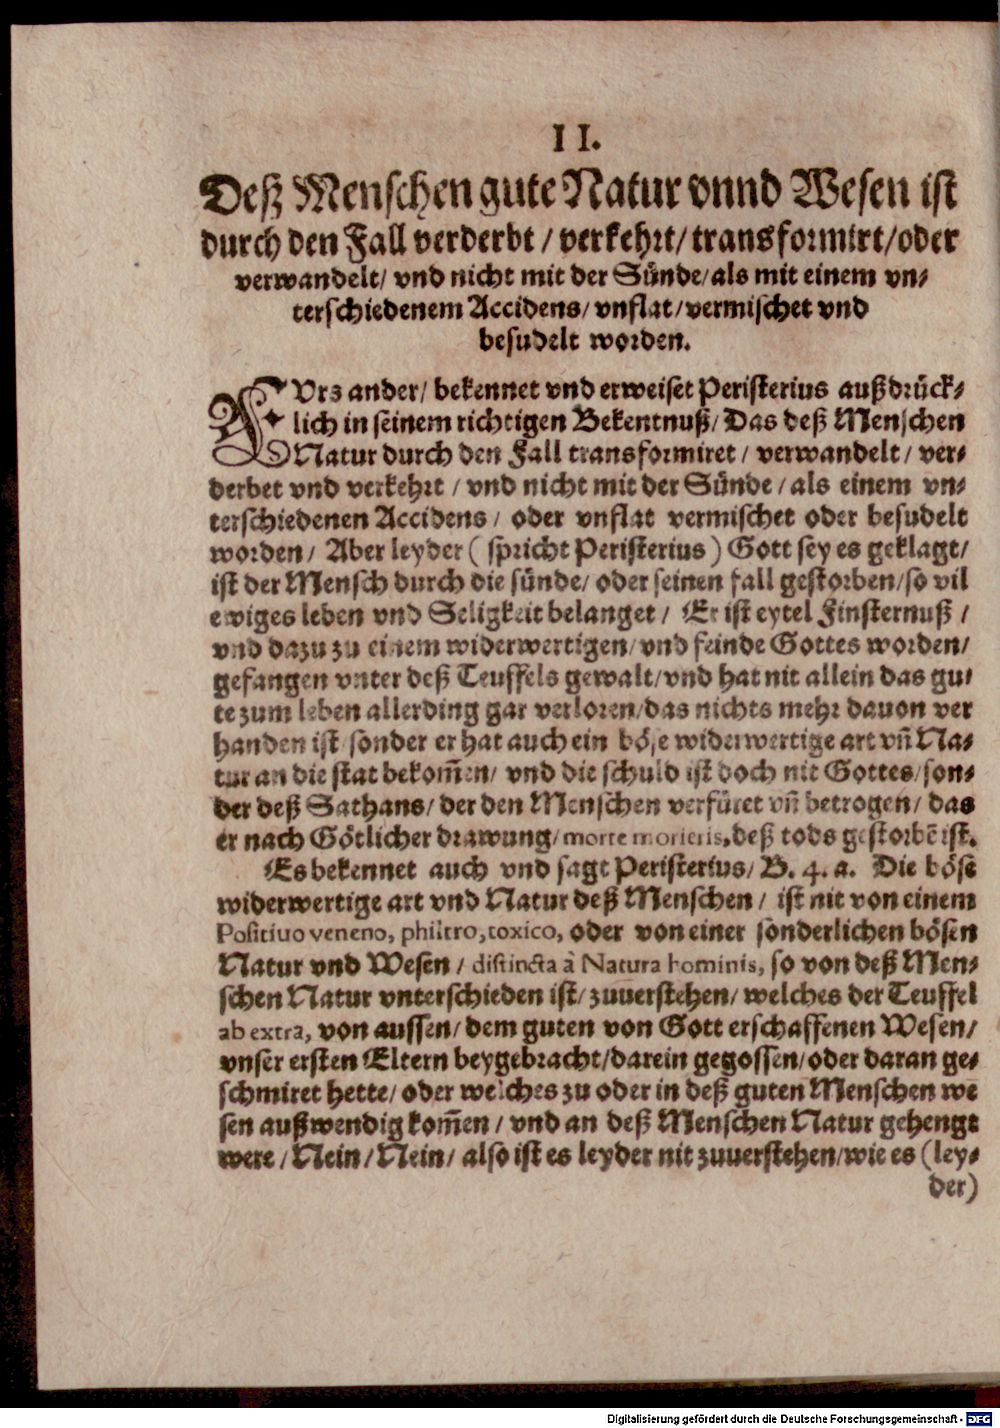 II.
Deß Menschen gute Natur vnnd Wesen ist
durch den Fall verderbt / verkehrt / transformirt / oder
verwandelt / vnd nicht mit der Sünde / als mit einem vn-
terschiedenem Accidens / vnflat / vermischet vnd
besudelt worden.
FVrs ander / bekennet vnd erweiset Peristerius außdrück-
lich in seinem richtigen Bekentnuß / Das deß Menschen
Natur durch den Fall transformiret / verwandelt / ver-
derbet vnd verkehrt / vnd nicht mit der Sünde / als einem vn-
terschiedenen Accidens / oder vnflat vermischet oder besudelt
worden / Aber leyder ( spricht Peristerius ) Gott sey es geklagt /
ist der Mensch durch die sünde / oder seinen fall gestorben / so vil
ewiges leben vnd Seligkeit belanget / Er ist eytel Finsternuß /
vnd dazu zu einem widerwertigen / vnd feinde Gottes worden /
gefangen vnter deß Teuffels gewalt / vnd hat nit allein das gu-
te zum leben allerding gar verloren / das nichts mehr dauon ver
handen ist / sonder er hat auch ein böse widerwertige art vñ Na-
tur an die stat bekom̃en / vnd die schuld ist doch nit Gottes / son-
der deß Sathans / der den Menschen verfüret vñ betrogen / das
er nach Götlicher drawung / morte morieris, deß tods gestorbẽ ist.
Es bekennet auch vnd sagt Peristerius / B. 4. a. Die böse
widerwertige art vnd Natur deß Menschen / ist nit von einem
Positiuo veneno, philtro, toxico, oder von einer sonderlichen bösen
Natur vnd Wesen / distincta à Natura hominis, so von deß Men-
schen Natur vnterschieden ist / zuuerstehen / welches der Teuffel
ab extra, von aussen / dem guten von Gott erschaffenen Wesen /
vnser ersten Eltern beygebracht / darein gegossen / oder daran ge-
schmiret hette / oder welches zu oder in deß guten Menschen we
sen außwendig kom̃en / vnd an deß Menschen Natur gehengt
were / Nein / Nein / also ist es leyder nit zuuerstehen / wie es (ley-
der)
Digitalisierung gefördert durch die Deutsche Forschungsgemeinschaft - DFG